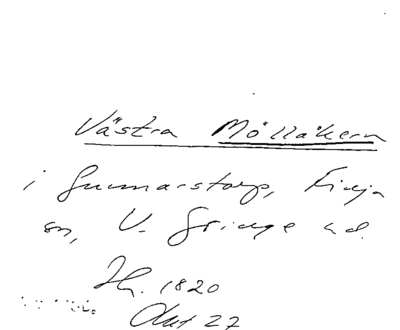 Västra Mölläkern
i Gunnarstorp, Finja
sn, V. Göinge hd.
Sk. 1820
Akt 27